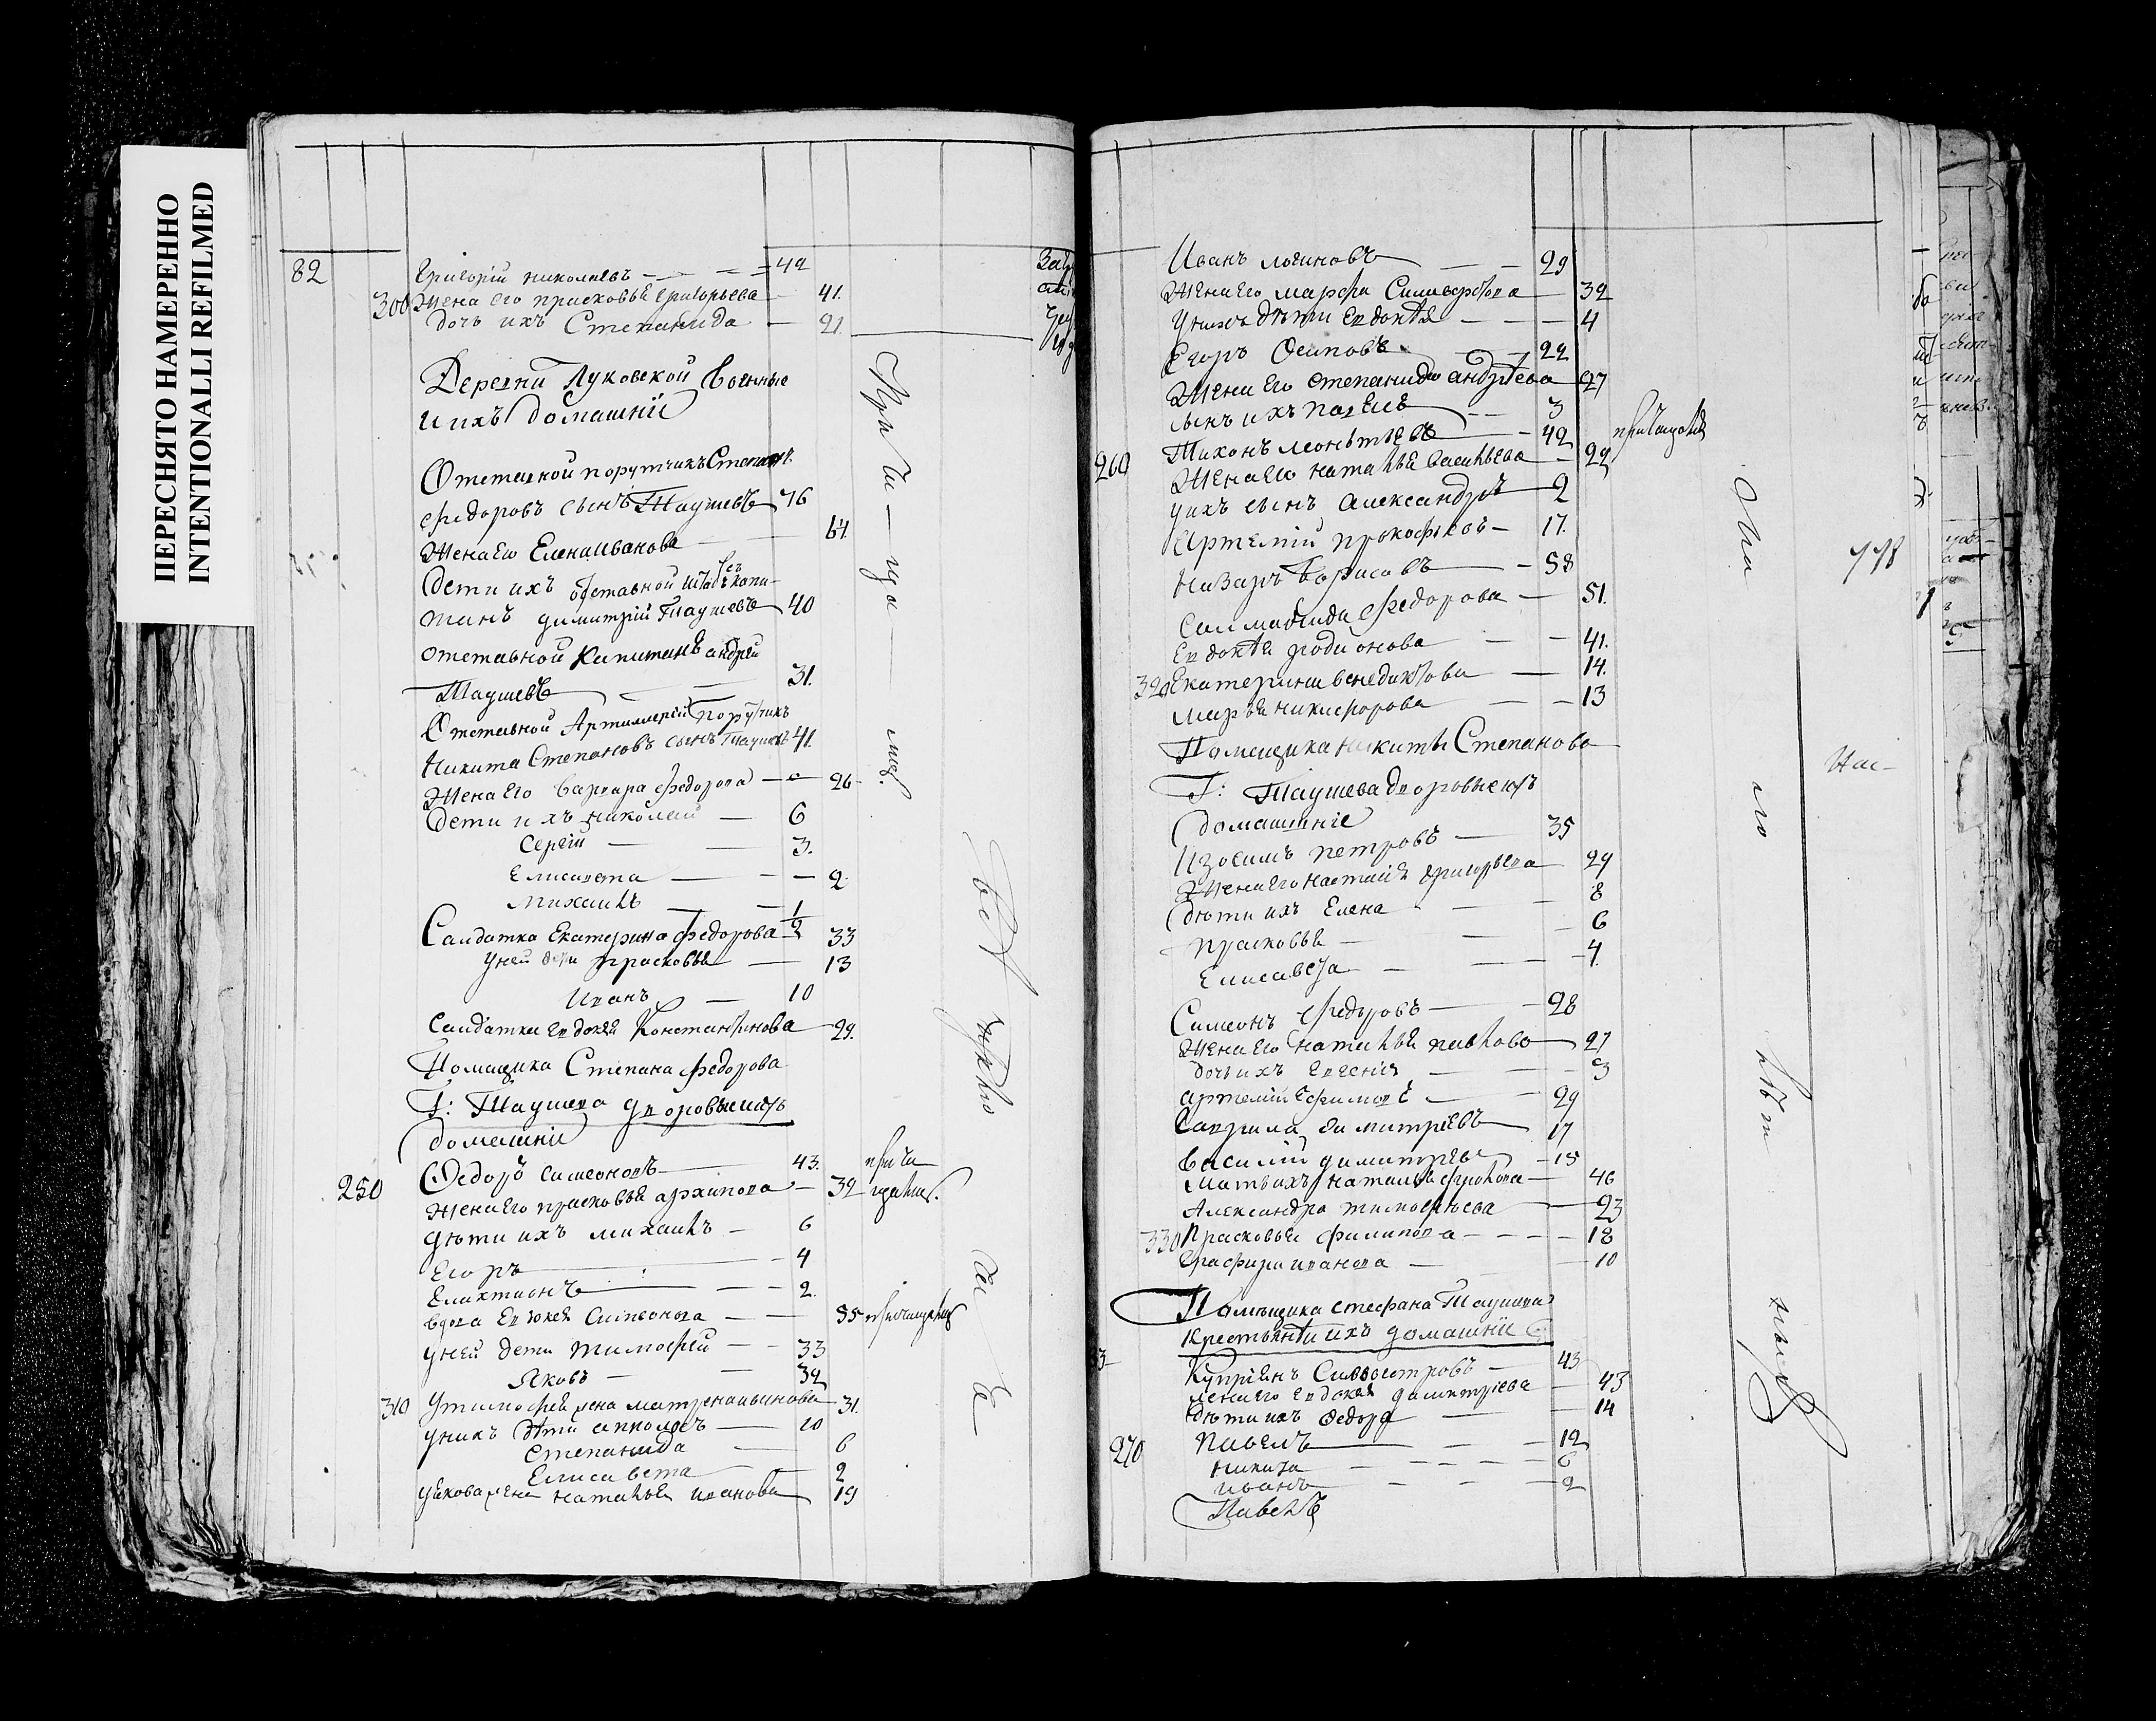 ПЕРЕСНЯТО НАМЕРЕННО
INTENTIONALLI REFILMED
82 Григорій николаевъ 42
300 Жена его прасковья григорьева 41.
дочь ихъ Степанида 21.
Деревни Луковской военные
и ихъ домашнїи
Отставной порутчикъ Степанъ
федоровъ сынъ Таушевъ 76
Жена его Елена иванова 64
Дети ихъ отставной штабсъ капи-
танъ димитрій Таушевъ 40
отставной капитанъ андрей
Таушевъ 31.
Отставной Артиллеріи порутчикъ
Никита Степановъ сынъ Таушевъ 41.
Жена его варвара федорова 26
Дети ихъ николай 6
Сергій 3.
Елисавета 2
Михаилъ 1/2
Салдатка Екатерина федорова 33
у ней дети прасковья 13
Иванъ 10
Салдатка евдокея Константинова 29.
Помещика Степана федорова
Г: Таушева дворовые ихъ
домашнїи
250 Федоръ симеоновъ 43. прича
Жена его прасковья архипова 32 щались.
дѣти ихъ михаилъ 6
Егоръ 4
Елахтионъ 2.
вдова Евдокея 55
у ней дети тимофей 33
Яковъ 32
310 У тимофея жена матрена 31.
у нихъ дѣти 10
Степанида 6
Елисавета 2
У якова жена наталья иванова 19
Иванъ логиновъ 29
Жена его марфа 32
у нихъ дѣти Евдокѣя 4
Егоръ Осиповъ 22
Жена его степанида андрѣева 27
сынъ ихъ павелъ 3
260 Тихонъ леонтьевъ 42
Жена его наталья васильева 29
у ихъ сынъ Александръ 2
Артемій прокофьевъ 17.
Назаръ Борисовъ 58
федорова 51.
Евдокѣя родионова 41.
320 Екатерина венедиктова 14.
марья никифорова 13
Помещика никиты Степанова
Г: Таушева дворовые ихъ
домашнїе
Изосимъ петровъ 35
Жена его настасия григорьева 29
дѣти ихъ Елена 8
прасковья 6
Елисавета 4.
Симеонъ федоровъ 28
Жена его наталья павлова 27
дочь ихъ Евгения 3
артемій Ефимовъ 29
Гаврила димитріевъ 17
василій димитріевъ 15
Мать ихъ наталья 46
Александра тимофѣева 23
330 Прасковья филипова 18
иванова 10
Помѣщика стефана Таушева
крестьяне и ихъ домашнїи
Купріянъ Силвестровъ 43
Жена его евдокея димитріева 43
дѣти ихъ Федора 14
270 Павелъ 12
Никита 6
иванъ 2
Павелъ
778